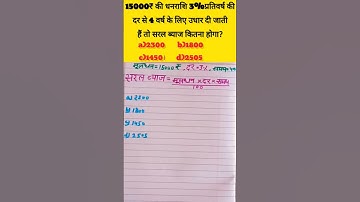 15000₹ की धनराशि 3%प्रतिवर्ष की
दर से 4 वर्ष के लिए उधार दी जाती
हैं तो सरल ब्याज कितना होगा?
a)2300 b)1800
c)1450 d)2505
मूलधन = 15000 ₹, दर = 3%, समय =
सरल ब्याज = मूलधन × दर × समय
100
a) 2300
b) 1800
c) 1450
d) 2505